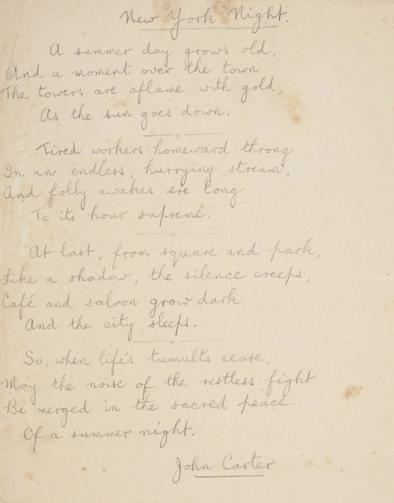 New York Night.
A summer day grows old,
And a moment over the town
The towers are aflame with gold,
As the sun goes down.
Tired workers homeward throng
In an endless, hurrying stream,
And folly awakes ere long
To its hour supreme.
At last, from square and park,
Like a shadow, the silence creeps,
Café and saloon grow dark
And the city sleeps.
So, when life's tumults cease,
May the noise of the restless fight
Be merged in the sacred peace
Of a summer night.
John Carter